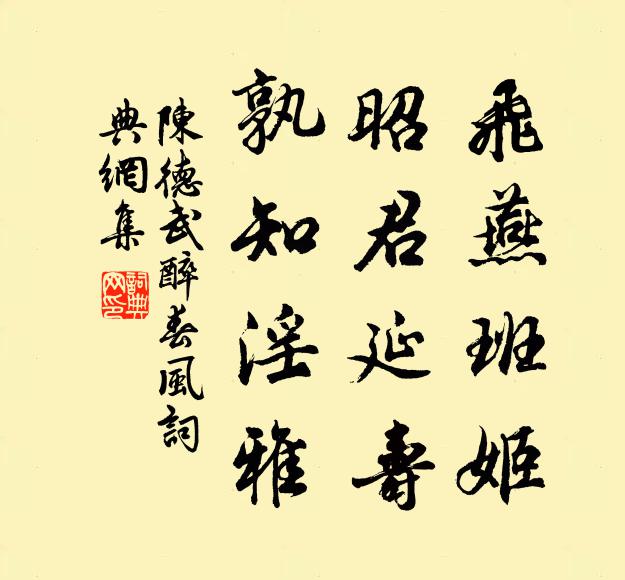 飛燕班姬
昭君延壽
孰知淫雅
陳德武醉春風詞
典網集
詞典網印